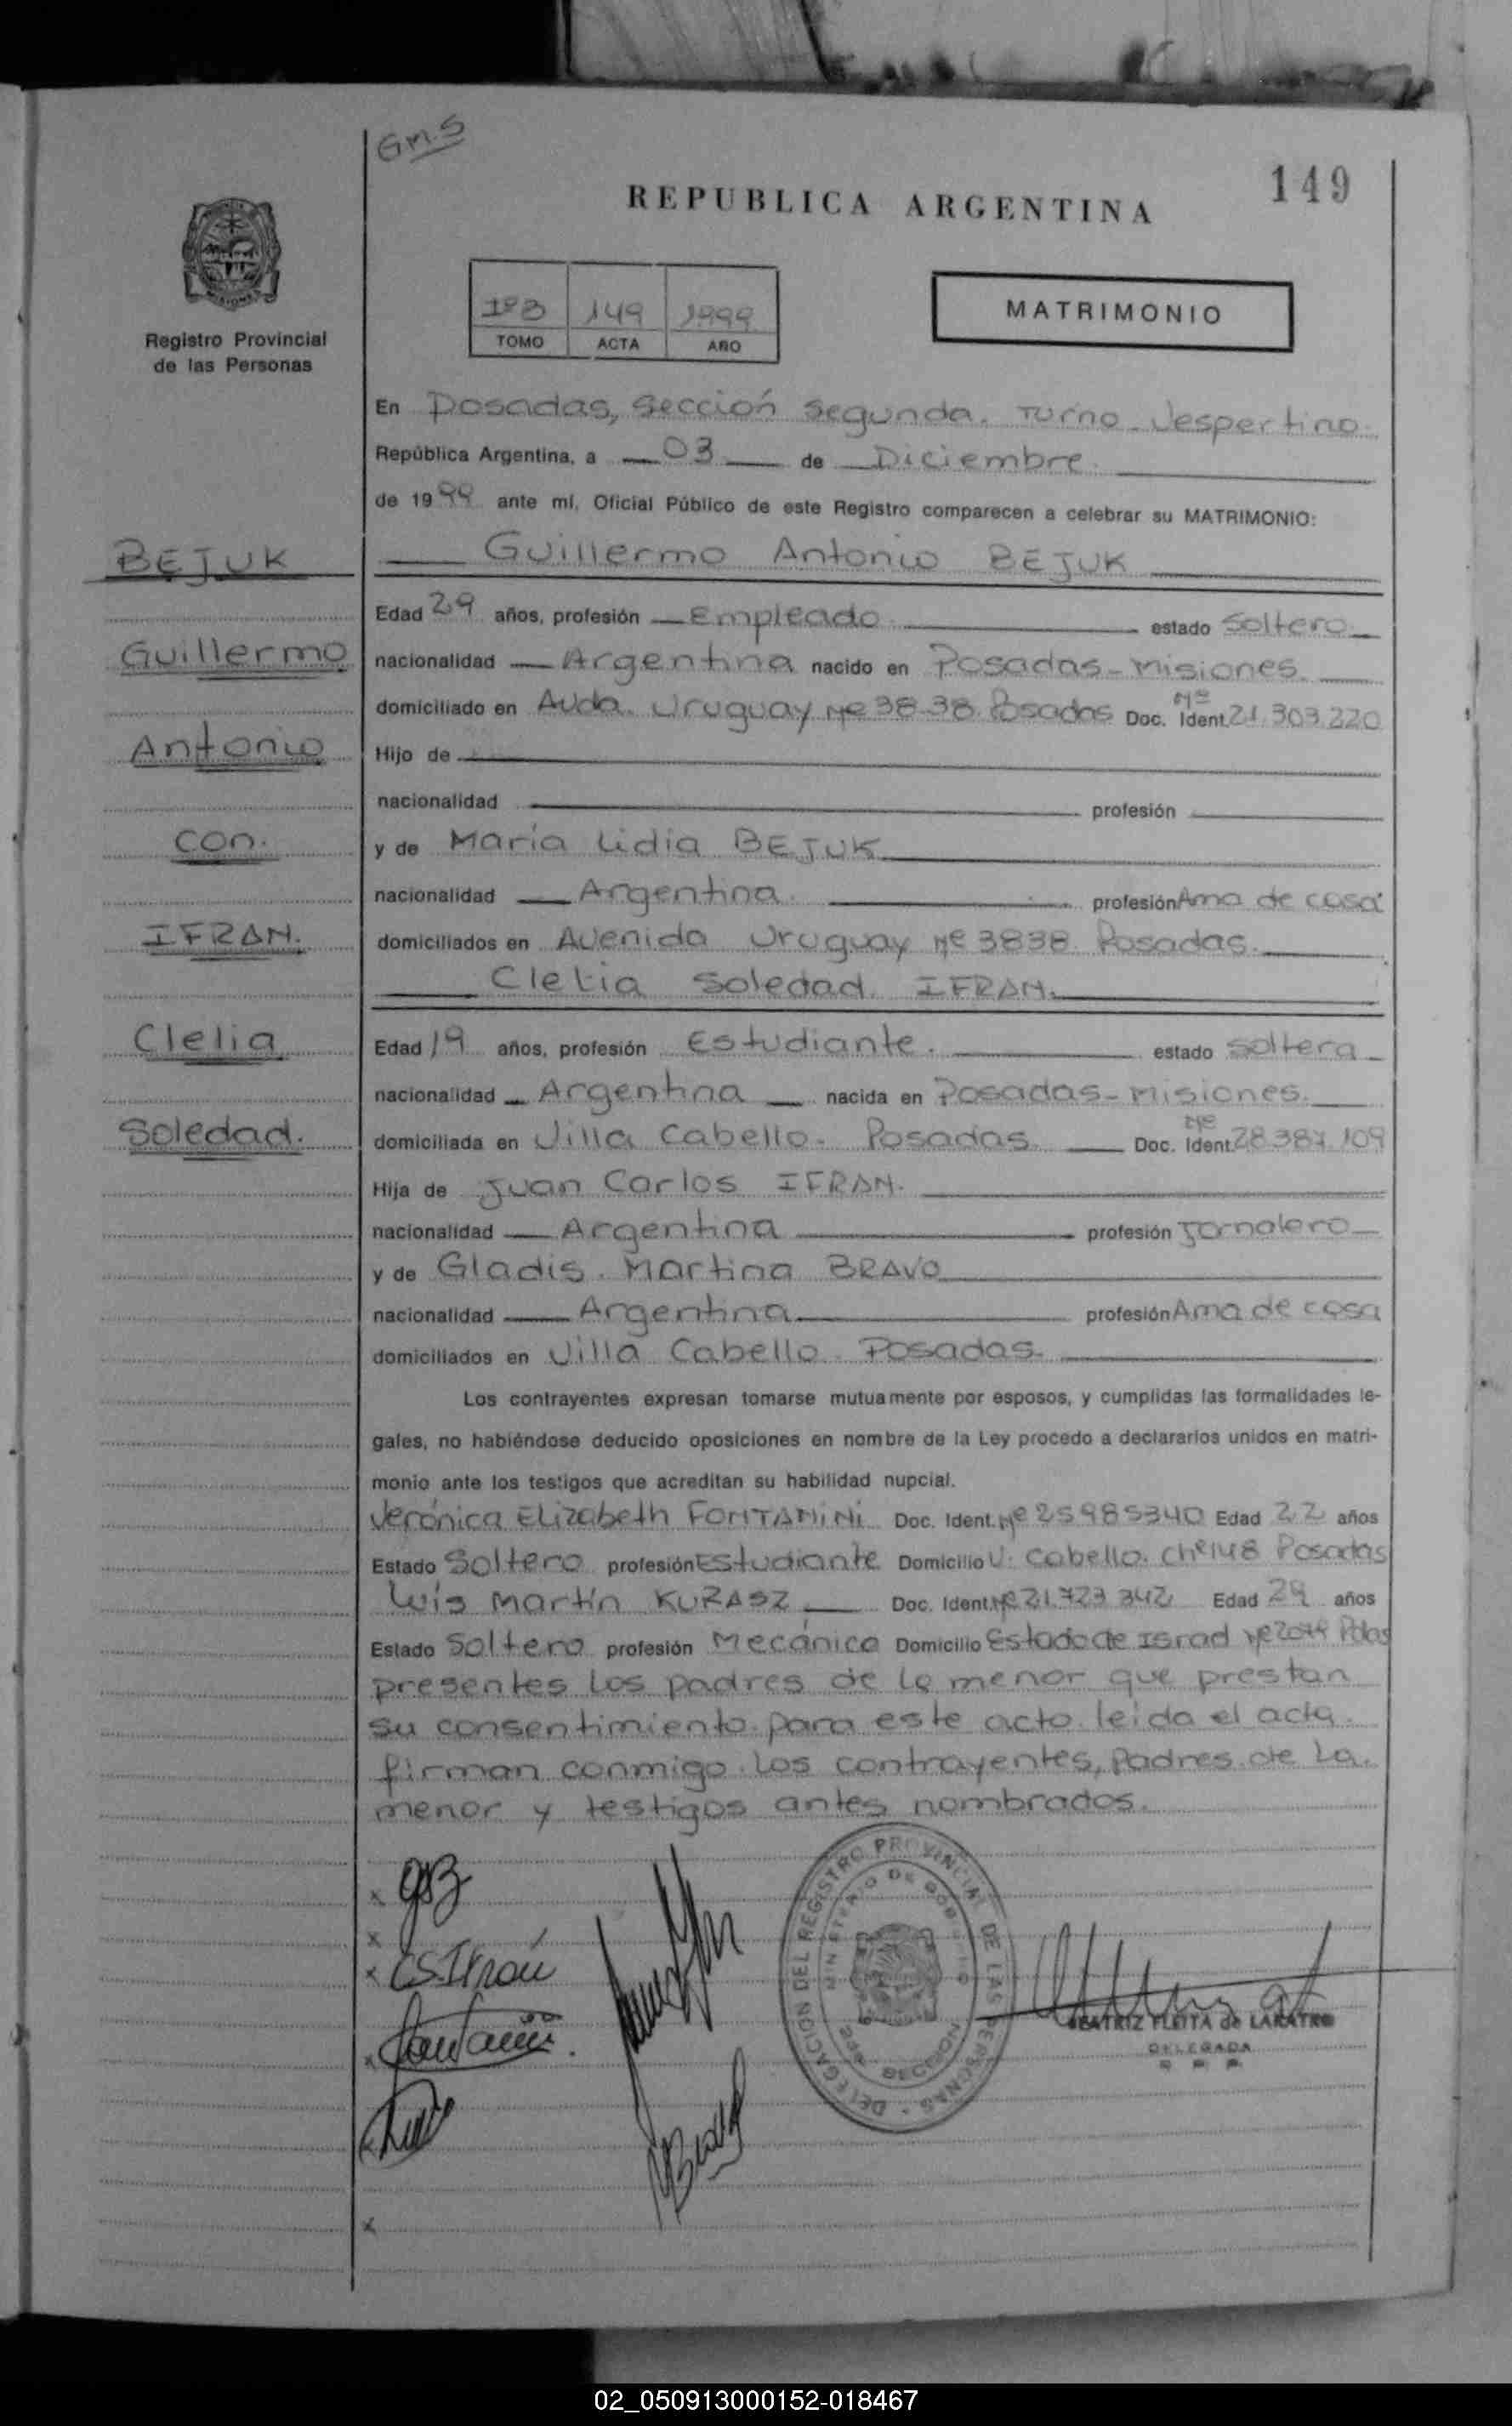 GM.S
149
REPUBLICA ARGENTINA
149 1999
TOMO ACTA AÑO
MATRIMONIO
Registro Provincial
de las Personas
En Posadas, Sección Segunda. Turno Vespertino.
República Argentina, a 03 de Diciembre.
de 1999 ante mí, Oficial Público de este Registro comparecen a celebrar su MATRIMONIO:
BEJUK
Guillermo Antonio BEJUK
Edad 29 años, profesión Empleado. estado Soltero
Guillermo
nacionalidad Argentina nacido en Posadas-Misiones.
domiciliado en Avda. Uruguay Nº 3838 Posadas Doc. Ident. Nº 21.303.220
Antonio
Hijo de
nacionalidad profesión
con.
y de María Lidia BEJUK
nacionalidad Argentina. profesión Ama de casa
IFRAN.
domiciliados en Avenida Uruguay Nº 3838. Posadas.
Clelia Soledad. IFRAN.
Clelia
Edad 19 años, profesión Estudiante. estado Soltera
nacionalidad Argentina nacida en Posadas-Misiones.
Soledad.
domiciliada en Villa Cabello. Posadas. Doc. Ident. Nº 28.387.109
Hija de Juan Carlos IFRAN.
nacionalidad Argentina profesión Jornalero
y de Gladis. Martina BRAVO
nacionalidad Argentina profesión Ama de casa
domiciliados en Villa Cabello. Posadas.
Los contrayentes expresan tomarse mutuamente por esposos, y cumplidas las formalidades le-
gales, no habiéndose deducido oposiciones en nombre de la Ley procedo a declararlos unidos en matri-
monio ante los testigos que acreditan su habilidad nupcial.
Verónica Elizabeth FONTANiNi Doc. Ident. Nº 25985340 Edad 22 años
Estado Soltero profesión Estudiante Domicilio V. Cabello. Chº148 Posadas
Luis Martín KURASZ Doc. Ident. Nº 21.723.342 Edad 29 años
Estado Soltero profesión Mecánico Domicilio Estado de Israel Pdas
presentes los padres de la menor que prestan
su consentimiento para este acto. leida el acta.
firman conmigo los contrayentes, Padres de la.
menor y testigos antes nombrados.
DELEGACION DEL REGISTRO PROVINCIAL DE LAS PERSONAS
MINISTERIO DE GOBIERNO
SECCION
BEATRIZ FLEITA de LARATRO
DELEGADA
02_050913000152-018467